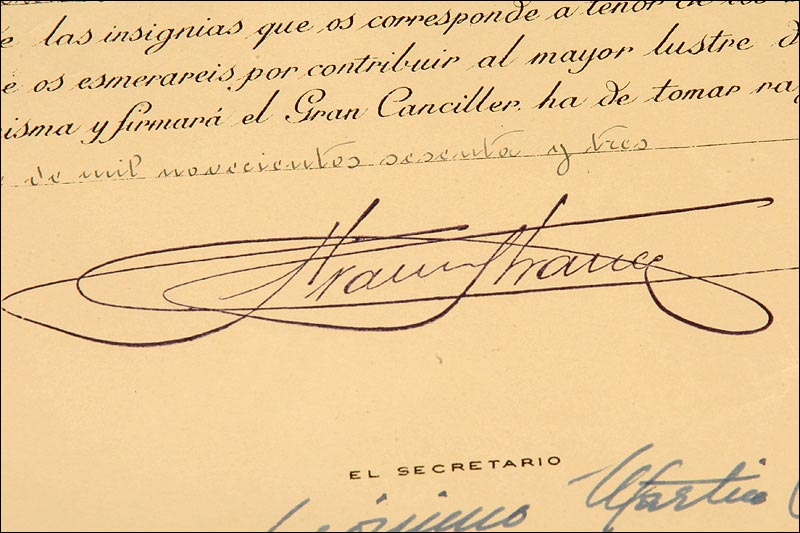 e las insignias que os corresponde a tenor de
e os esmerareis por contribuir al mayor lustre d
isma y firmará el Gran Canciller, ha de tomar ra
de mil novecientos sesenta y tres
Fran Franco
EL SECRETARIO
Martin